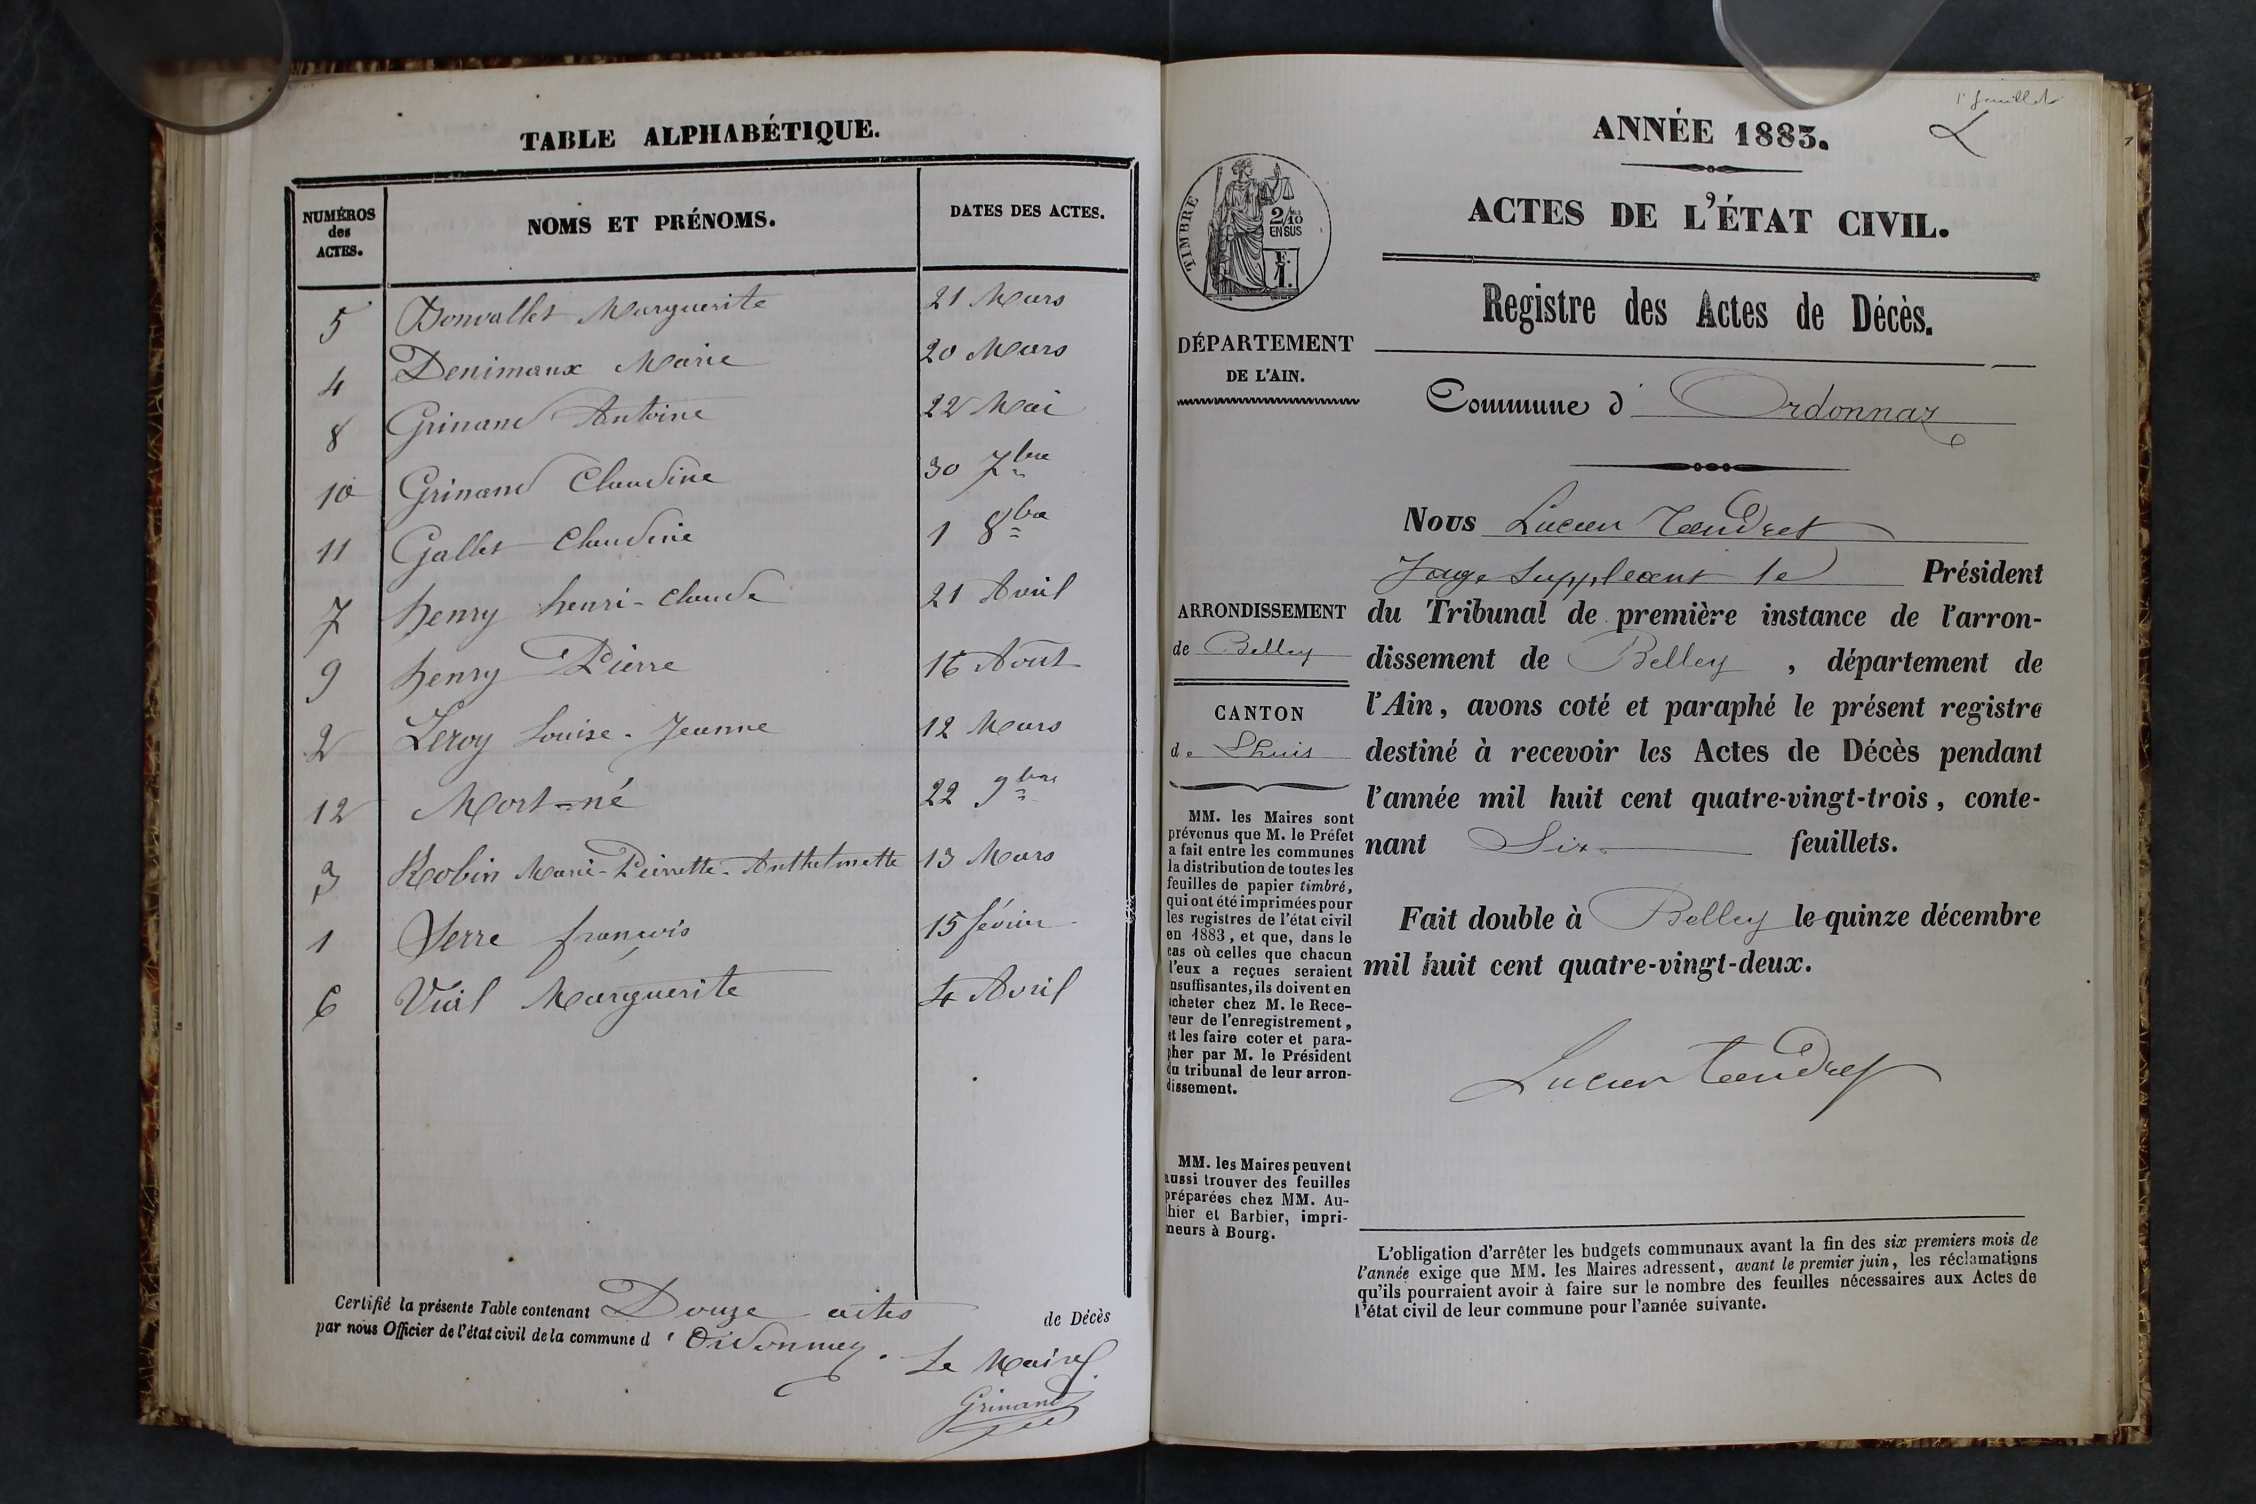 TABLE ALPHABÉTIQUE.
NUMÉROS des ACTES.
NOMS ET PRÉNOMS.
DATES DES ACTES.
5 Bonvallet Marguerite 21 Mars
4 Denimaux Marie 20 Mars
8 Grinand Antoine 22 Mai
10 Grinand Claudine 30 7bre
11 Gallet Claudine 1 8bre
7 henry henri-claude 21 Avril
9 henry Pierre 16 Aout
2 Leroy Louise-Jeanne 12 Mars
12 Mort-né 22 9bre
3 Robin Marie-Pierrette-Anthelmette 13 Mars
1 Serre françois 15 février
6 Vial Marguerite 4 Avril
Certifié la présente Table contenant Douze actes de Décès
par nous Officier de l'état civil de la commune d'Ordonnaz.
Le Maire
Grinand
1er feuillet
ANNÉE 1883.
ACTES DE L'ÉTAT CIVIL.
Registre des Actes de Décès.
TIMBRE
2/10 EN SUS
DÉPARTEMENT
DE L'AIN.
Commune d'Ordonnaz
Nous Lucien Tendret
Juge Suppléant le Président
du Tribunal de première instance de l'arron-
dissement de Belley, département de
l'Ain, avons coté et paraphé le présent registre
destiné à recevoir les Actes de Décès pendant
l'année mil huit cent quatre-vingt-trois, conte-
nant Six feuillets.
Fait double à Belley le quinze décembre
mil huit cent quatre-vingt-deux.
Lucien Tendret
ARRONDISSEMENT
de Belley
CANTON
de Lhuis
MM. les Maires sont
prévenus que M. le Préfet
a fait entre les communes
la distribution de toutes les
feuilles de papier timbré,
qui ont été imprimées pour
les registres de l'état civil
en 1883, et que, dans le
cas où celles que chacun
l'eux a reçues seraient
nsuffisantes, ils doivent en
cheter chez M. le Rece-
veur de l'enregistrement,
et les faire coter et para-
pher par M. le Président
du tribunal de leur arron-
dissement.
MM. les Maires peuvent
aussi trouver des feuilles
préparées chez MM. Au-
thier et Barbier, impri-
meurs à Bourg.
L'obligation d'arrêter les budgets communaux avant la fin des six premiers mois de
l'année exige que MM. les Maires adressent, avant le premier juin, les réclamations
qu'ils pourraient avoir à faire sur le nombre des feuilles nécessaires aux Actes de
l'état civil de leur commune pour l'année suivante.